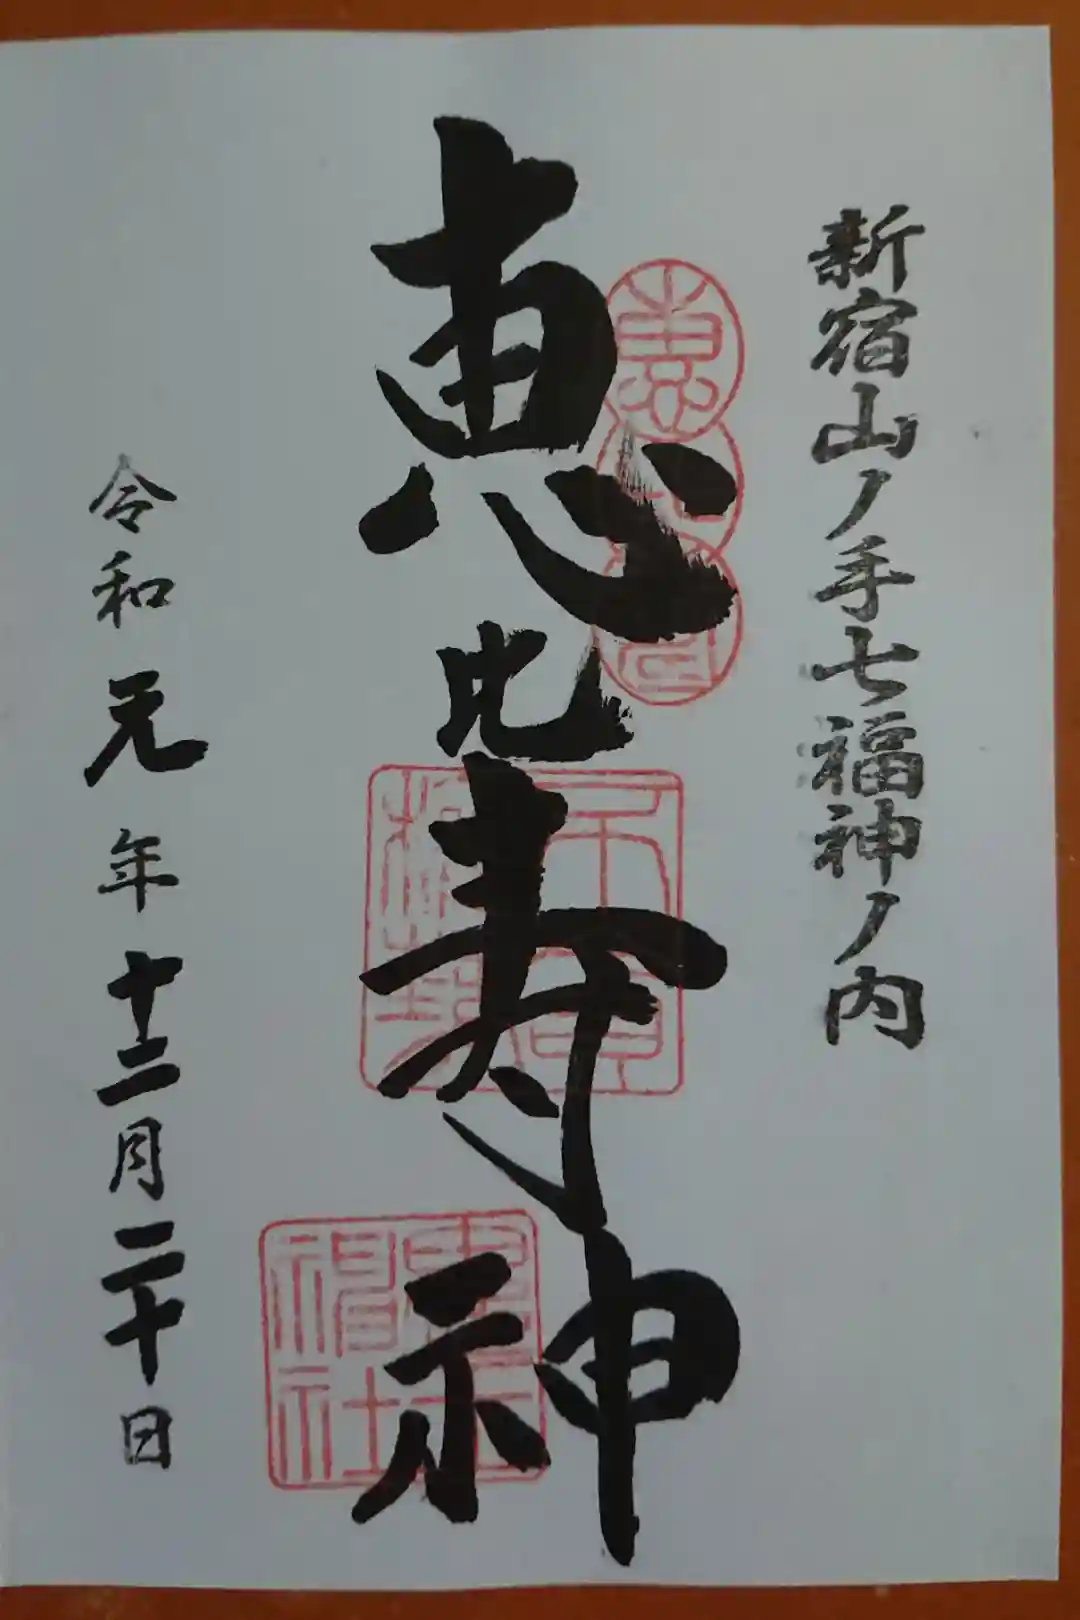 新宿山ノ手七福神ノ内
恵比寿神
令和元年十二月二十日